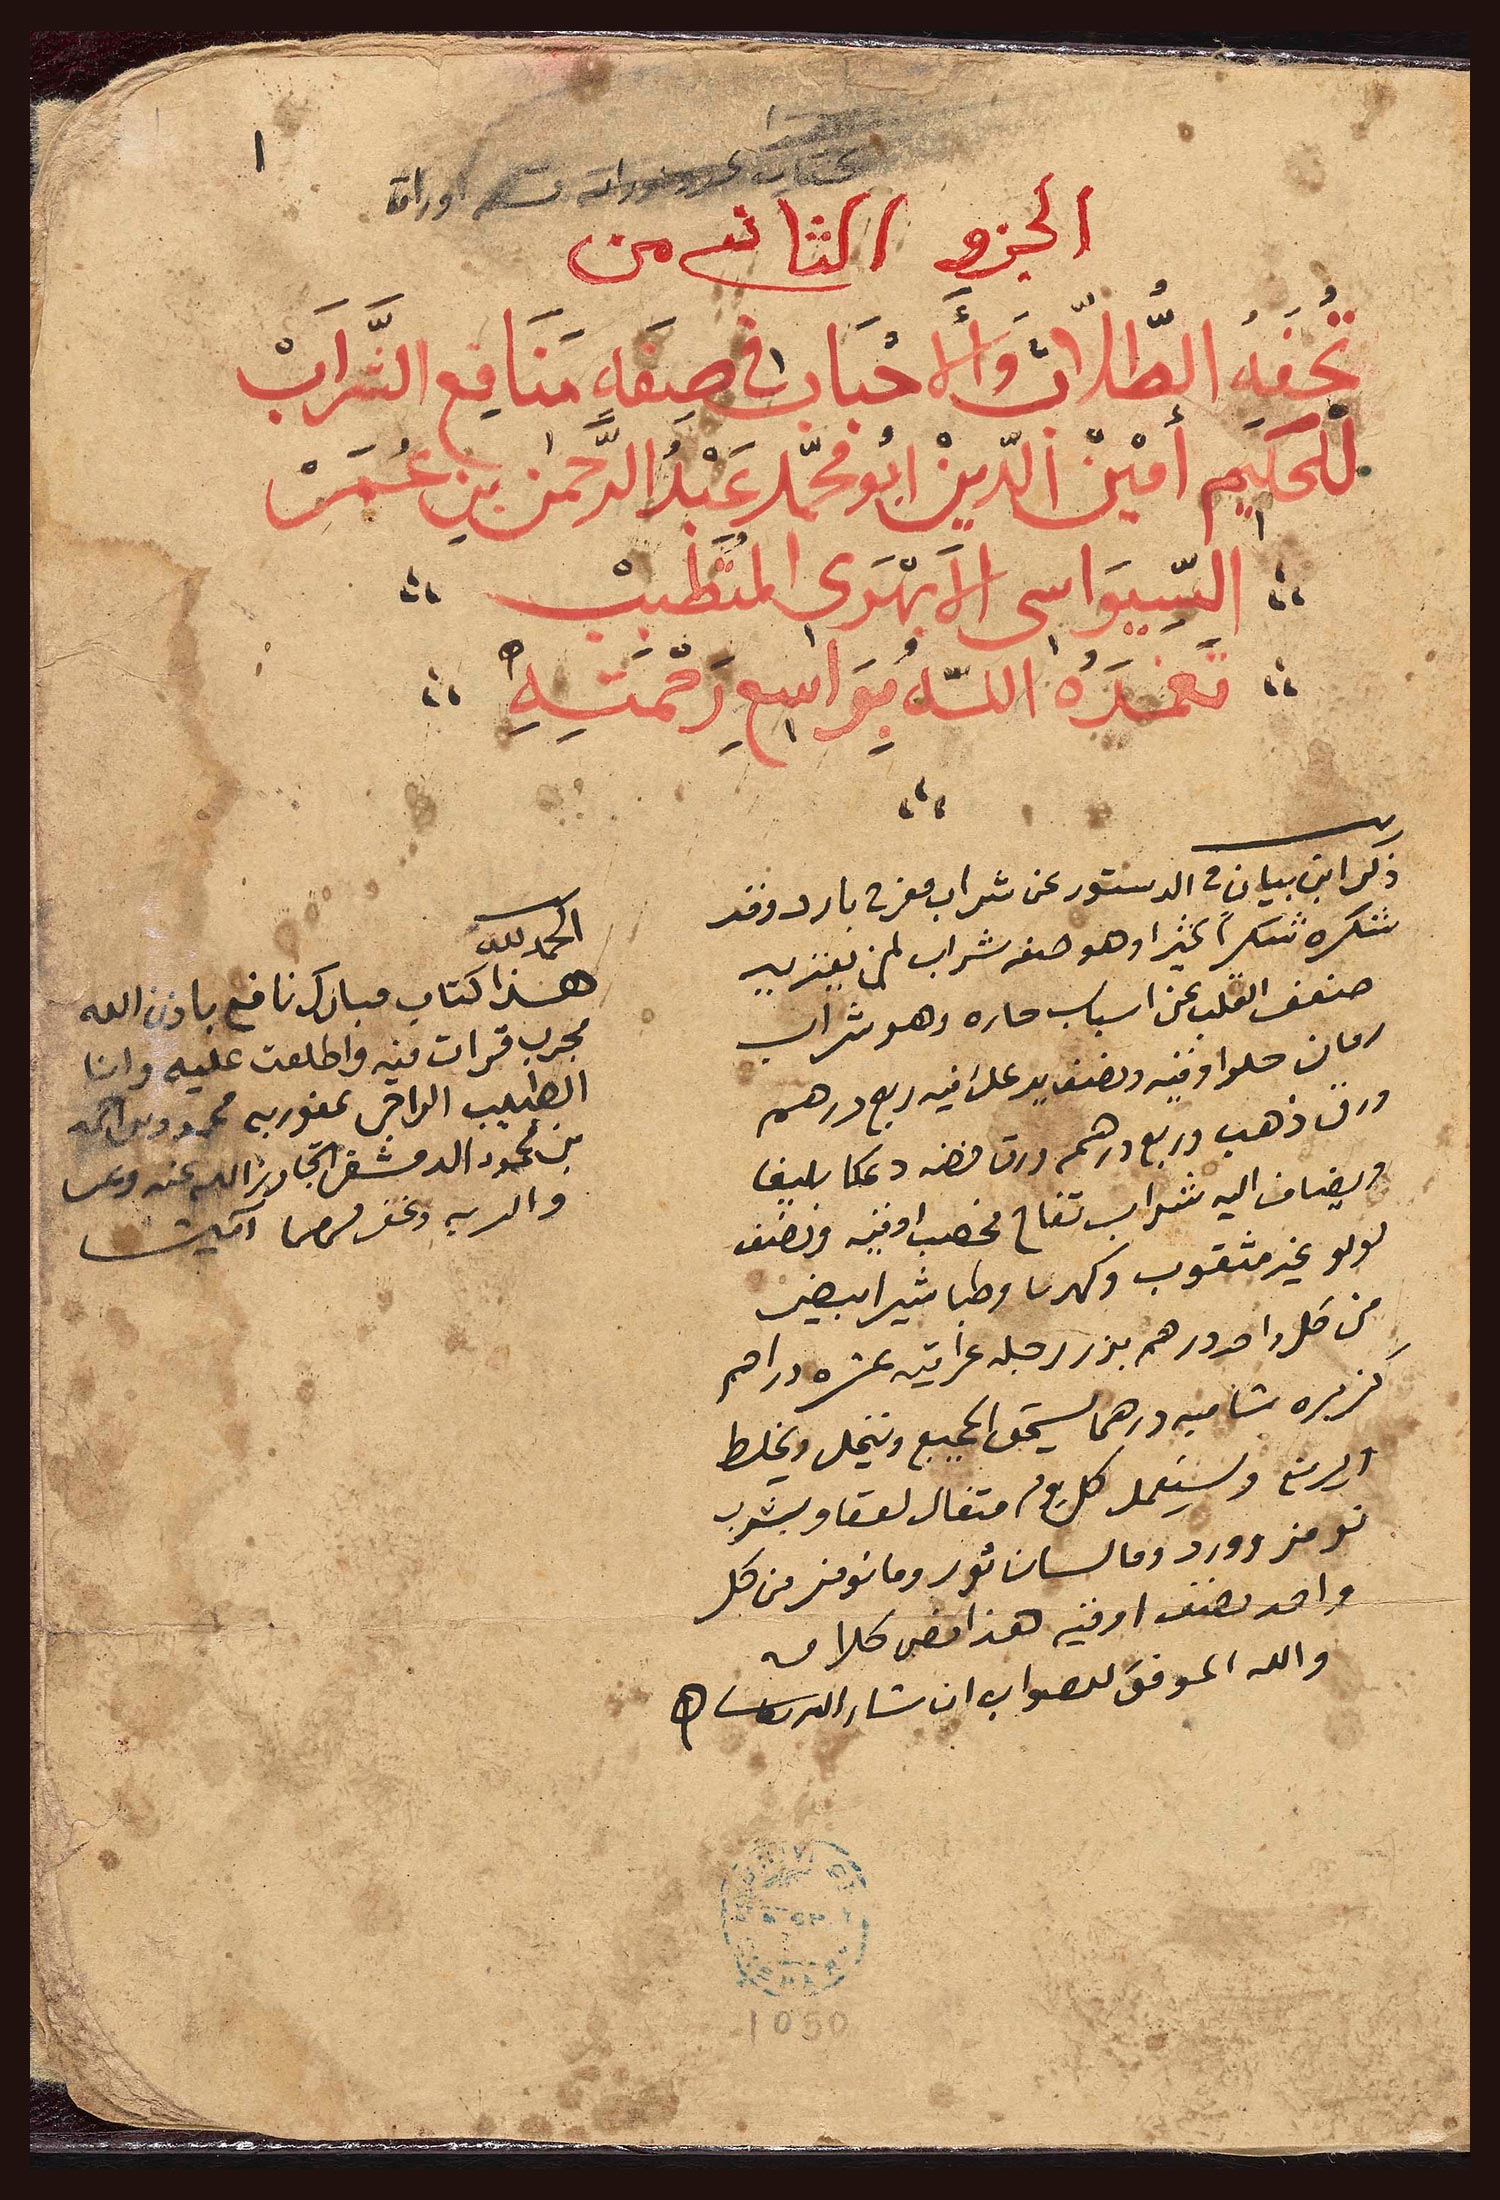 ١
اوراقه
الجزو الثاني من
تُحْفَهُ الطُّلّابْ وَالأَحْبَابْ في صِفَهِ مَنَافِع الشَّرَابْ
للحَكيِم أمْيْن الدّينْ ابُو محمّد عَبْدُ الرَّحمن بنِ عُمَرْ
السّيِوَاسى الاَبْهَرَى المُتَطَبِبْ
تَغمَدَهُ اللّهُ بِوَاسِعِ رَحْمَتِهِ
ذكر ابن بيان في الدستور عن شراب مفرح بارد وقد
شكره شكراً كثيرا وهو صفه شراب لمن يعتريه
ضعف القلب عن اسباب حاره وهو شراب
رمان حلو اوقيه ونصف يدعك فيه ربع درهم
ورق ذهب وربع درهم ورق فضه دعكا بليغا
ويضاف اليه شراب تفاح مخصب اوقيه ونصف
لولو غير مثقوب وكهربا وطباشير ابيض
من كل واحد درهم بزر رجله عراقيه عشره دراهم
كزبره شاميه درهما يسحق الجميع وينخل ويخلط
ويستعمل كل يوم مثقال لعقا ويشرب
وورد وما لسان ثور وما نوفر من كل
واحد نصف اوقيه هذا نص كلامه
والله الموفق للصواب ان شا الله
الحمد لله
هذا كتاب مبارك نافع باذن الله
مجرب قرات فيه واطلعت عليه وانا
الطبيب الراجى عفو ربه محمد بن احمد
بن محمود الدمشقى تجاوز الله عنه وعن
والديه وغفر لهما آمين
1050